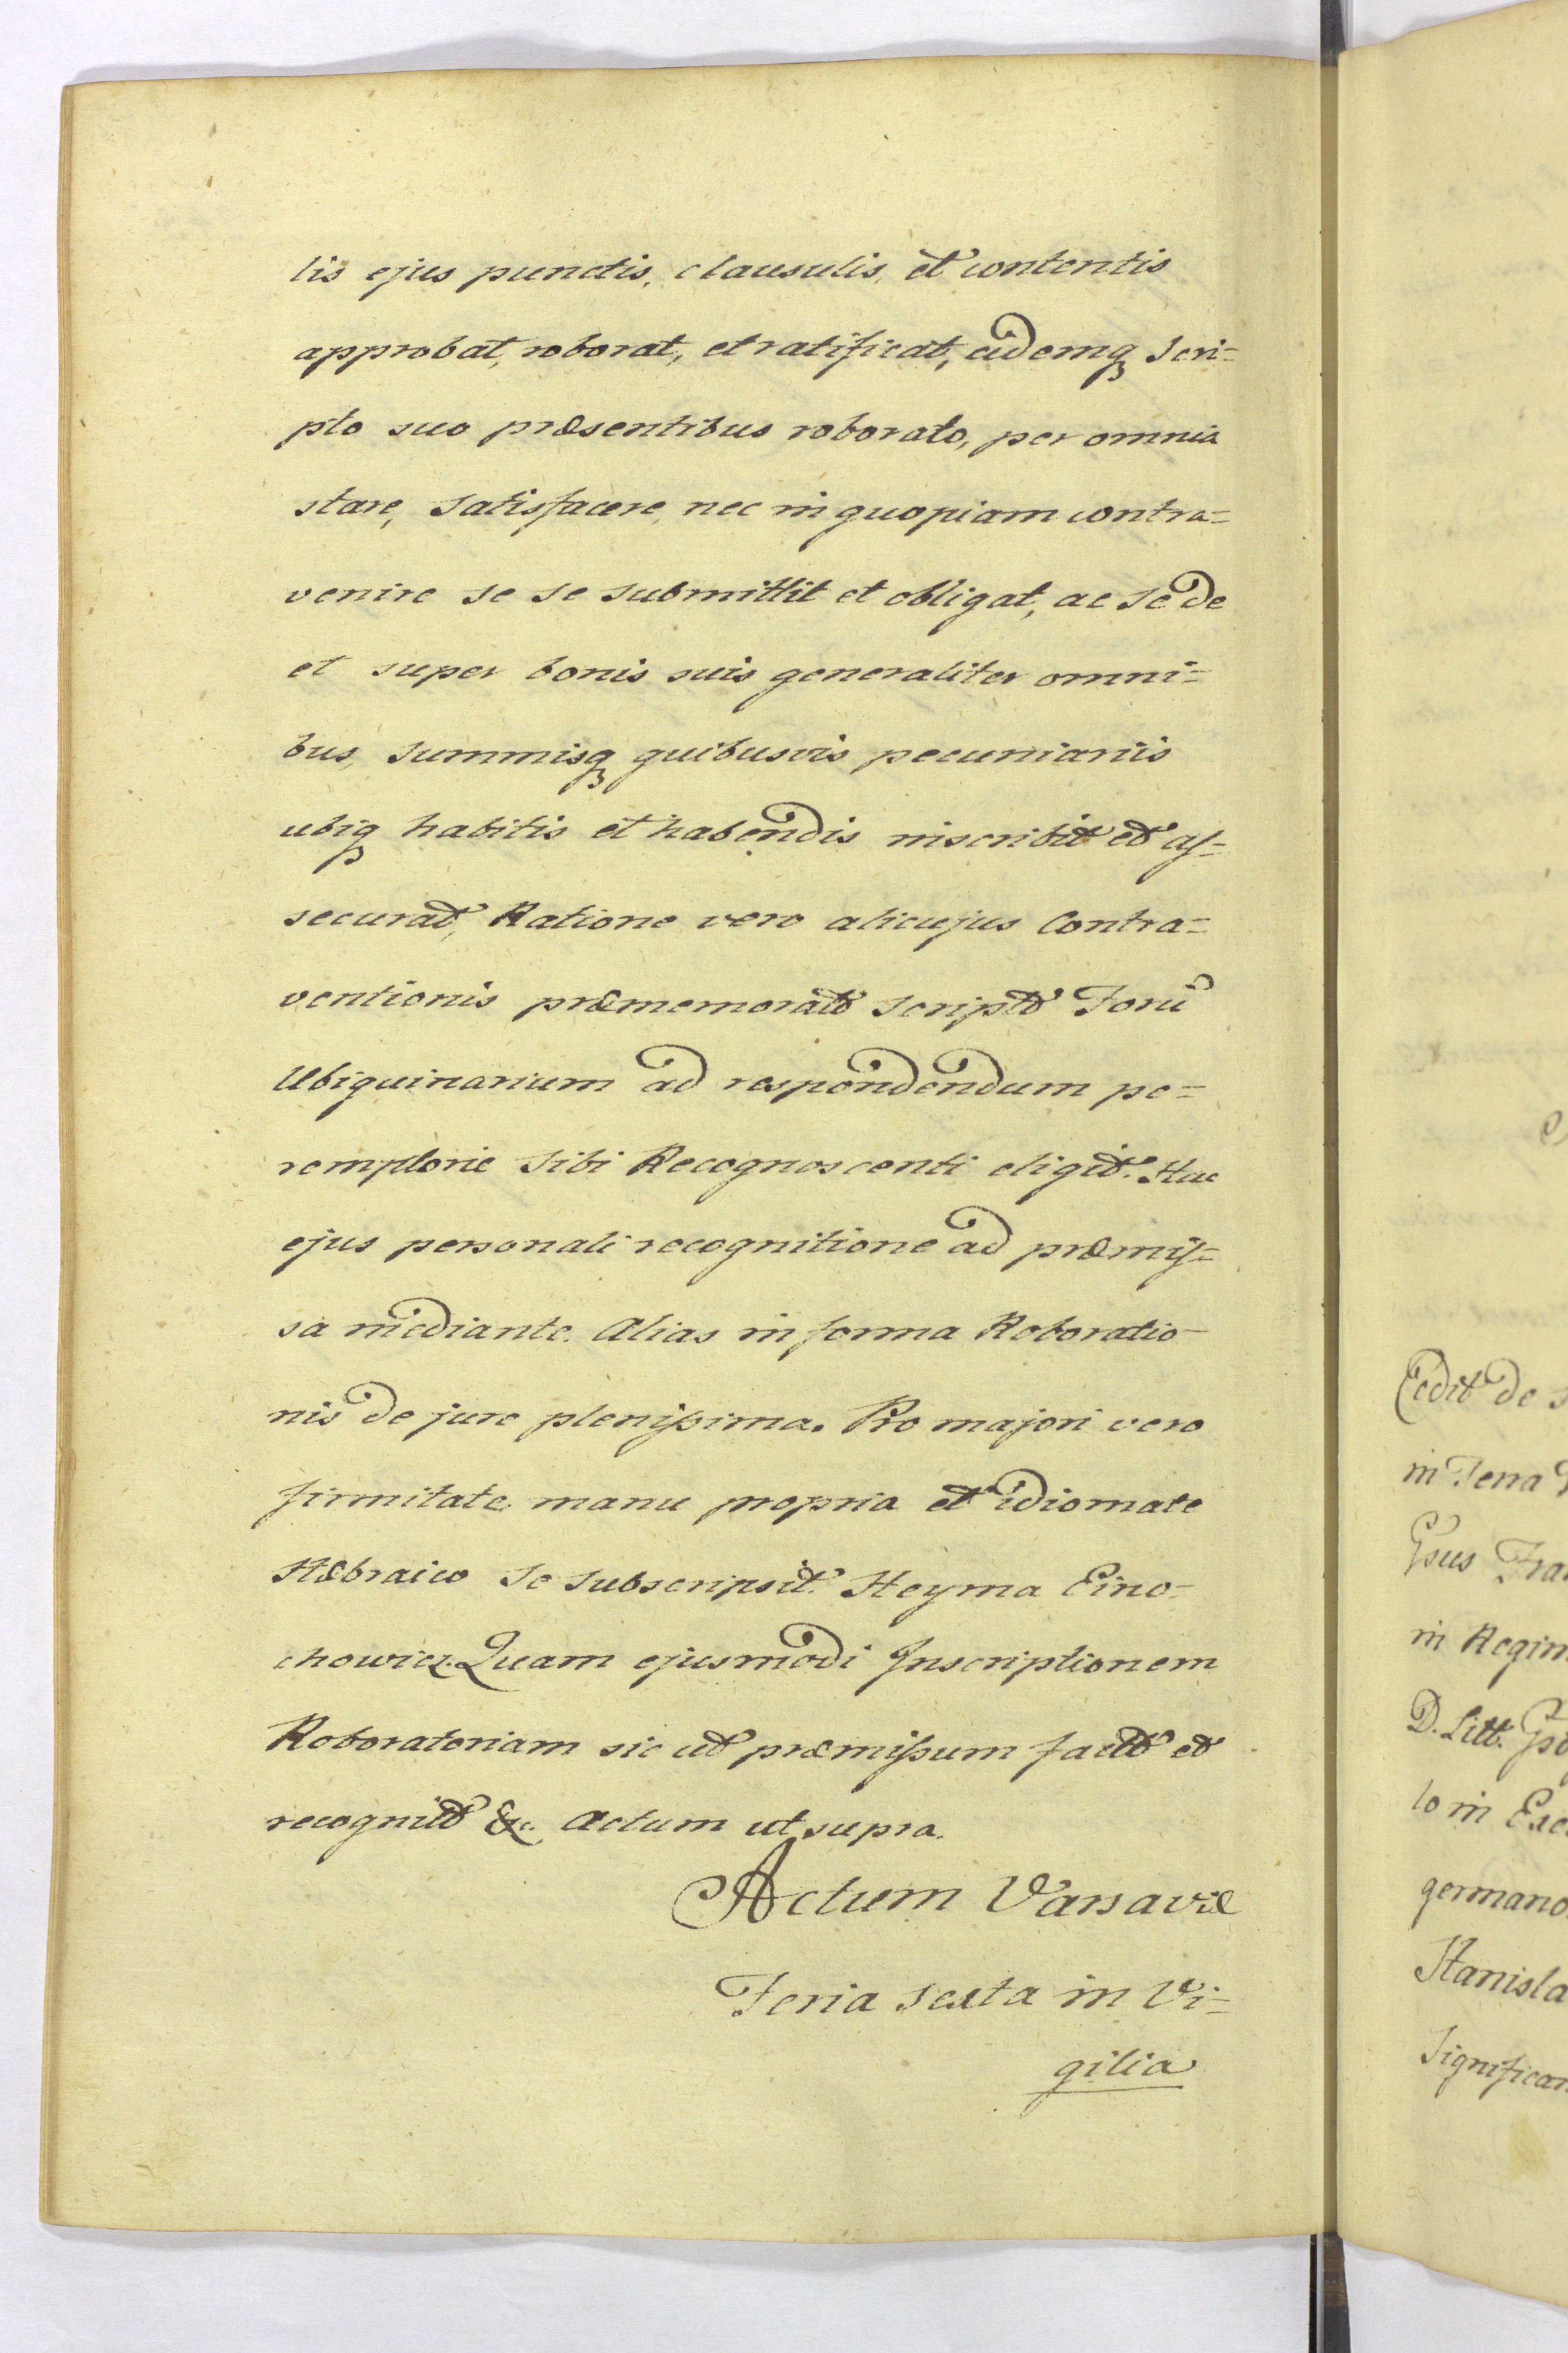 lis ejus punctis, clausulis, et contentis
approbat, roborat, et ratificat, eidemq Scri=
pto suo præsentibus roborato, per omnia
stare, Satisfacere, nec in quopiam contra=
venire se se submittit et obligat, ac Se de
et super bonis suis generaliter omni=
bus, Summisq quibusvis pecuniariis
ubiq habitis et habendis inscribit et as=
securat, Ratione vero alicujus Contra=
ventionis præmemorato Scripto Foru
Ubiquinarium ad respondendum pe=
remptorie Sibi Recognoscenti eligit. Hac
ejus personali recognitione ad præmis=
sa mediante. Alias in forma Roboratio-
nis de jure plenissima. Pro majori vero
firmitate manu propria et idiomate
Hæbraico Se Subscripsit. Heyma Eino-
chowicz. Quam ejusmodi Inscriptionem
Roboratoriam sic ut præmissum fact et
recognit &c. Actum ut supra.
Actum Varsaviæ
Feria Sexta in Vi=
gilia
Cedit de
in Tena
Gsus
in Regim
D. Litt.
lo in Exc
germano
Stanisla
Significan